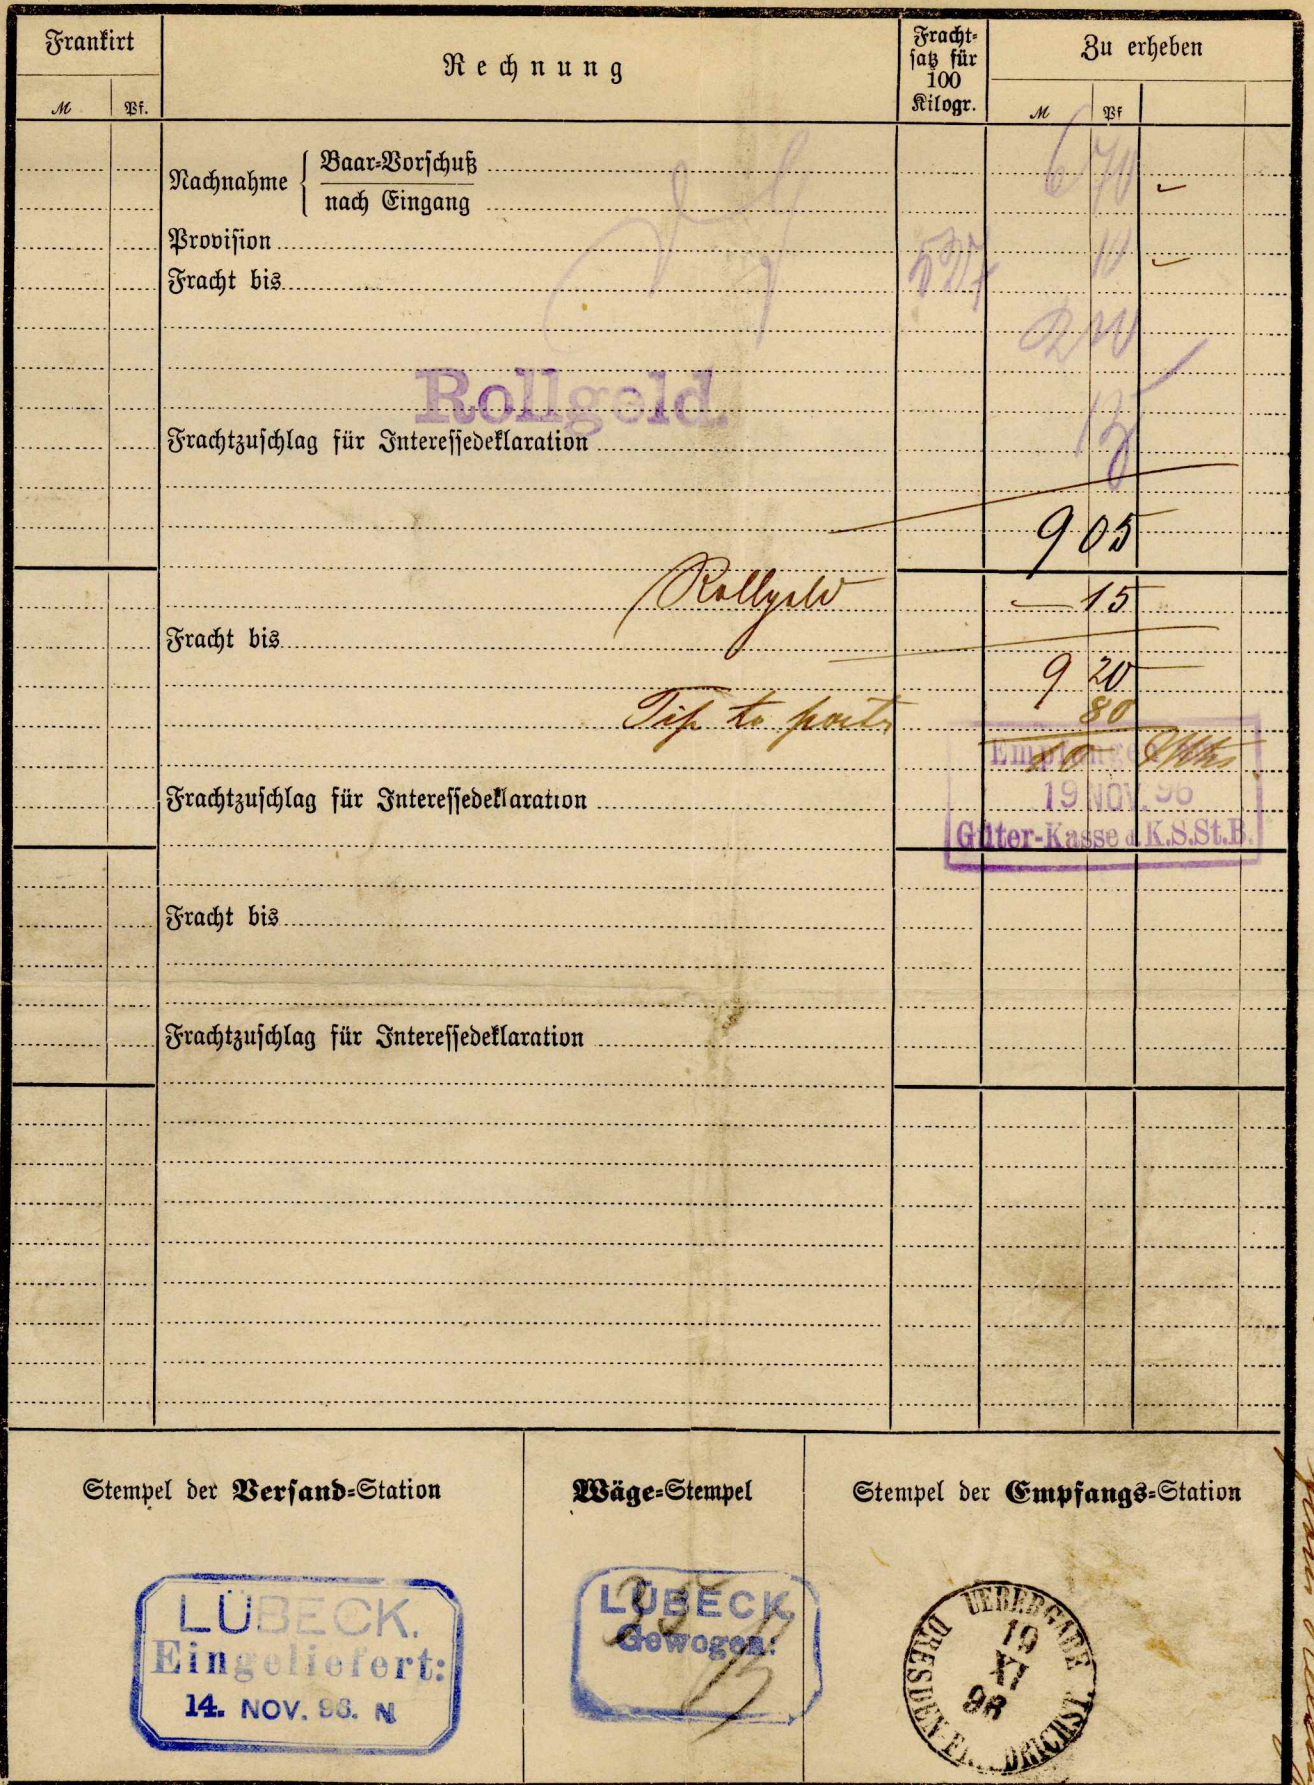 Frankirt
Rechnung
Fracht-
satz für
100
Kilogr.
Zu erheben
M Pf.
M Pf
Nachnahme { Baar-Vorschuß
nach Eingang
6 70
Provision
10
Fracht bis
2 10
Rollgeld.
15
Frachtzuschlag für Interessedeklaration
9 05
Rollgeld — 15
Fracht bis
9 20
Tip to porter 80
10 Mks
Empfangen
19 NOV. 96
Güter-Kasse d. K.S.St.B.
Frachtzuschlag für Interessedeklaration
Fracht bis
Frachtzuschlag für Interessedeklaration
Stempel der Versand-Station
Wäge-Stempel
Stempel der Empfangs-Station
LÜBECK.
Eingeliefert:
14. NOV. 96. N
LÜBECK
Gewogen:
35
UEBERGABE
DRESDEN FRIEDRICHST.
19
XI
96